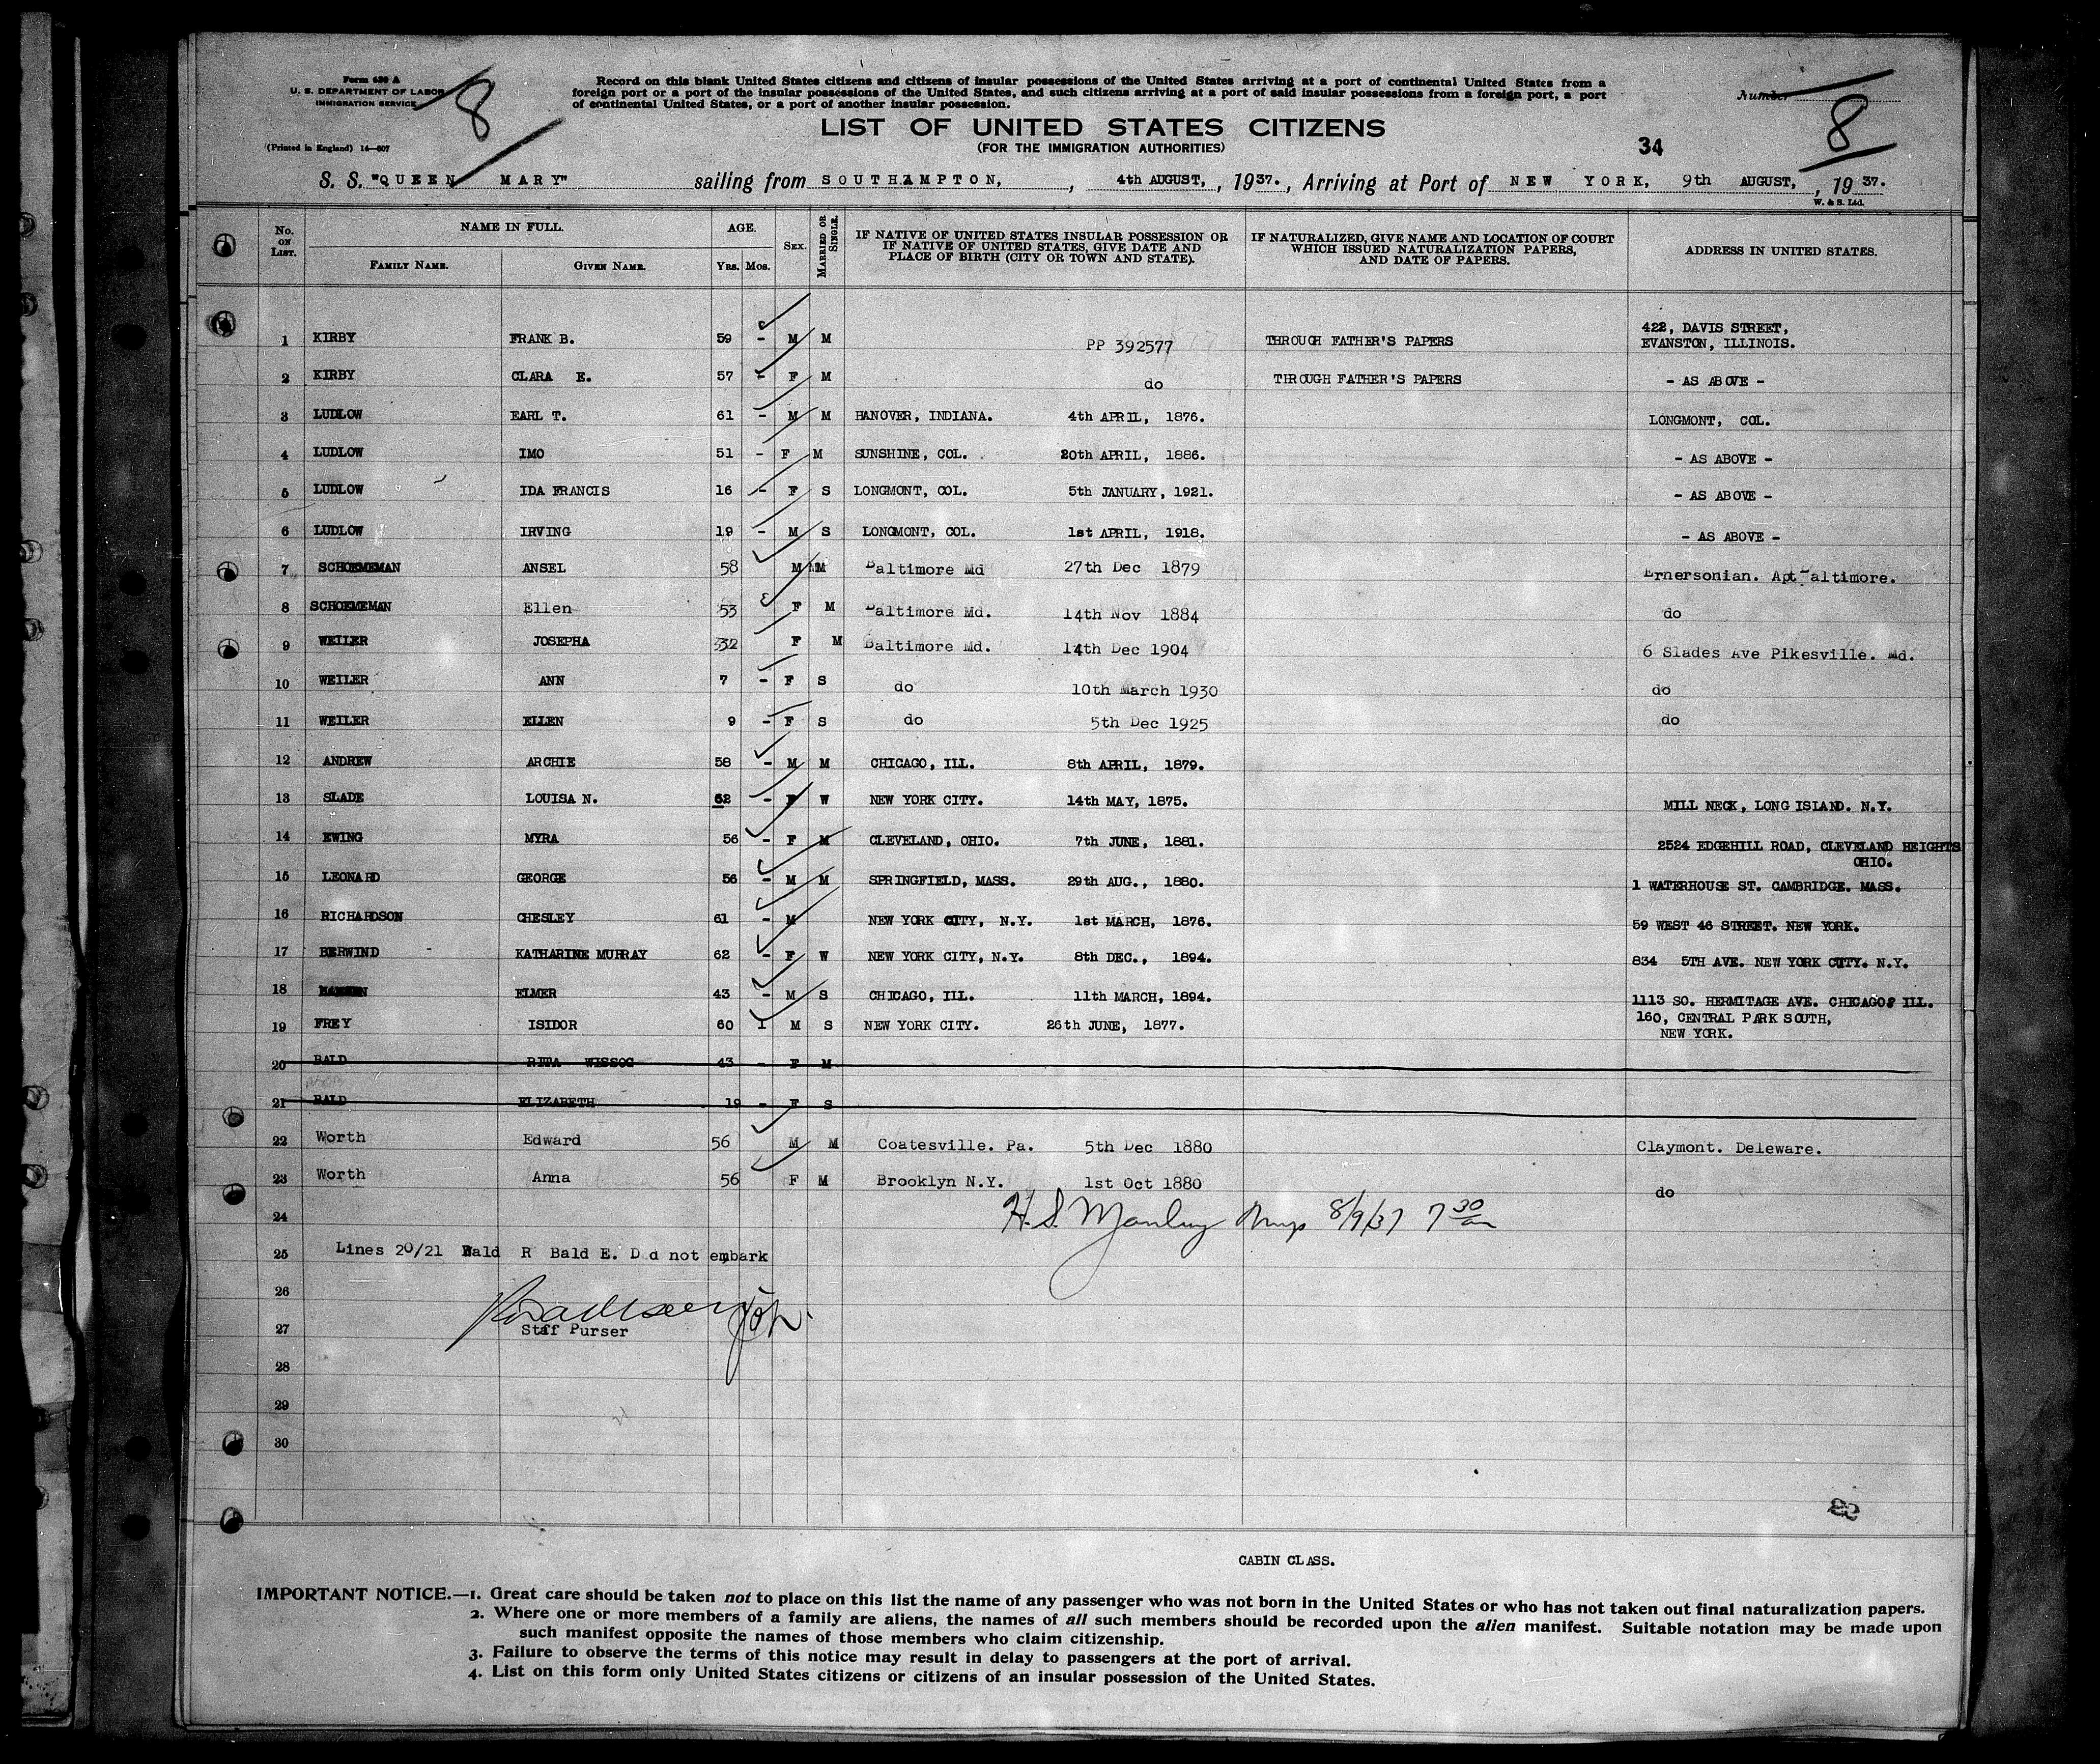 Form 630 A
U. S. DEPARTMENT OF LABOR
IMMIGRATION SERVICE
(Printed in England) 14—607
8
Record on this blank United States citizens and citizens of insular possessions of the United States arriving at a port of continental United States from a
foreign port or a port of the insular possessions of the United States, and such citizens arriving at a port of said insular possessions from a foreign port, a port
of continental United States, or a port of another insular possession.
Number
8
LIST OF UNITED STATES CITIZENS
(FOR THE IMMIGRATION AUTHORITIES)
34
S. S. "QUEEN MARY" sailing from SOUTHAMPTON, , 4th AUGUST, , 1937. , Arriving at Port of NEW YORK, 9th AUGUST, , 19 37.
W. & S. Ltd.
No. ON LIST. NAME IN FULL. AGE. SEX. MARRIED OR SINGLE. IF NATIVE OF UNITED STATES INSULAR POSSESSION OR IF NATIVE OF UNITED STATES, GIVE DATE AND PLACE OF BIRTH (CITY OR TOWN AND STATE). IF NATURALIZED, GIVE NAME AND LOCATION OF COURT WHICH ISSUED NATURALIZATION PAPERS, AND DATE OF PAPERS. ADDRESS IN UNITED STATES.
FAMILY NAME. GIVEN NAME. YRS. MOS.
1 KIRBY FRANK B. 59 - M M PP 392577 THROUGH FATHER'S PAPERS 422, DAVIS STREET, EVANSTON, ILLINOIS.
2 KIRBY CLARA E. 57 - F M do THROUGH FATHER'S PAPERS - AS ABOVE -
3 LUDLOW EARL T. 61 - M M HANOVER, INDIANA. 4th APRIL, 1876. LONGMONT, COL.
4 LUDLOW IMO 51 - F M SUNSHINE, COL. 20th APRIL, 1886. - AS ABOVE -
5 LUDLOW IDA FRANCIS 16 - F S LONGMONT, COL. 5th JANUARY, 1921. - AS ABOVE -
6 LUDLOW IRVING 19 - M S LONGMONT, COL. 1st APRIL, 1918. - AS ABOVE -
7 SCHOEMEMAN ANSEL 58 M M Baltimore Md 27th Dec 1879 Ernersonian. Apt Baltimore.
8 SCHOEMEMAN Ellen 53 F M Baltimore Md. 14th Nov 1884 do
9 WEILER JOSEPHA 32 F M Baltimore Md. 14th Dec 1904 6 Slades Ave Pikesville. Md.
10 WEILER ANN 7 - F S do 10th March 1930 do
11 WEILER ELLEN 9 - F S do 5th Dec 1925 do
12 ANDREW ARCHIE 58 - M M CHICAGO, ILL. 8th APRIL, 1879.
13 SLADE LOUISA N. 62 - F W NEW YORK CITY. 14th MAY, 1875. MILL NECK, LONG ISLAND. N.Y.
14 EWING MYRA 56 - F M CLEVELAND, OHIO. 7th JUNE, 1881. 2524 EDGEHILL ROAD, CLEVELAND HEIGHTS OHIO.
15 LEONARD GEORGE 56 - M M SPRINGFIELD, MASS. 29th AUG., 1880. 1 WATERHOUSE ST. CAMBRIDGE. MASS.
16 RICHARDSON CHESLEY 61 - M NEW YORK CITY, N.Y. 1st MARCH, 1876. 59 WEST 46 STREET. NEW YORK.
17 BERWIND KATHARINE MURRAY 62 - F W NEW YORK CITY, N.Y. 8th DEC., 1894. 834 5TH AVE. NEW YORK CITY. N.Y.
18 ELMER 43 - M S CHICAGO, ILL. 11th MARCH, 1894. 1113 SO. HERMITAGE AVE. CHICAGO, ILL.
19 FREY ISIDOR 60 1 M S NEW YORK CITY. 26th JUNE, 1877. 160, CENTRAL PARK SOUTH, NEW YORK.
20 BALD RITA WISSOG 43 - F M
21 BALD ELIZABETH 19 - F S
22 Worth Edward 56 M M Coatesville. Pa. 5th Dec 1880 Claymont. Deleware.
23 Worth Anna 56 F M Brooklyn N.Y. 1st Oct 1880 do
24 H. S. Manley 8/9/37 7 30 am
25 Lines 20/21 Bald R Bald E. D d not embark
26
27 Staff Purser
28
29
30
CABIN CLASS.
IMPORTANT NOTICE.—1. Great care should be taken not to place on this list the name of any passenger who was not born in the United States or who has not taken out final naturalization papers.
2. Where one or more members of a family are aliens, the names of all such members should be recorded upon the alien manifest. Suitable notation may be made upon
such manifest opposite the names of those members who claim citizenship.
3. Failure to observe the terms of this notice may result in delay to passengers at the port of arrival.
4. List on this form only United States citizens or citizens of an insular possession of the United States.